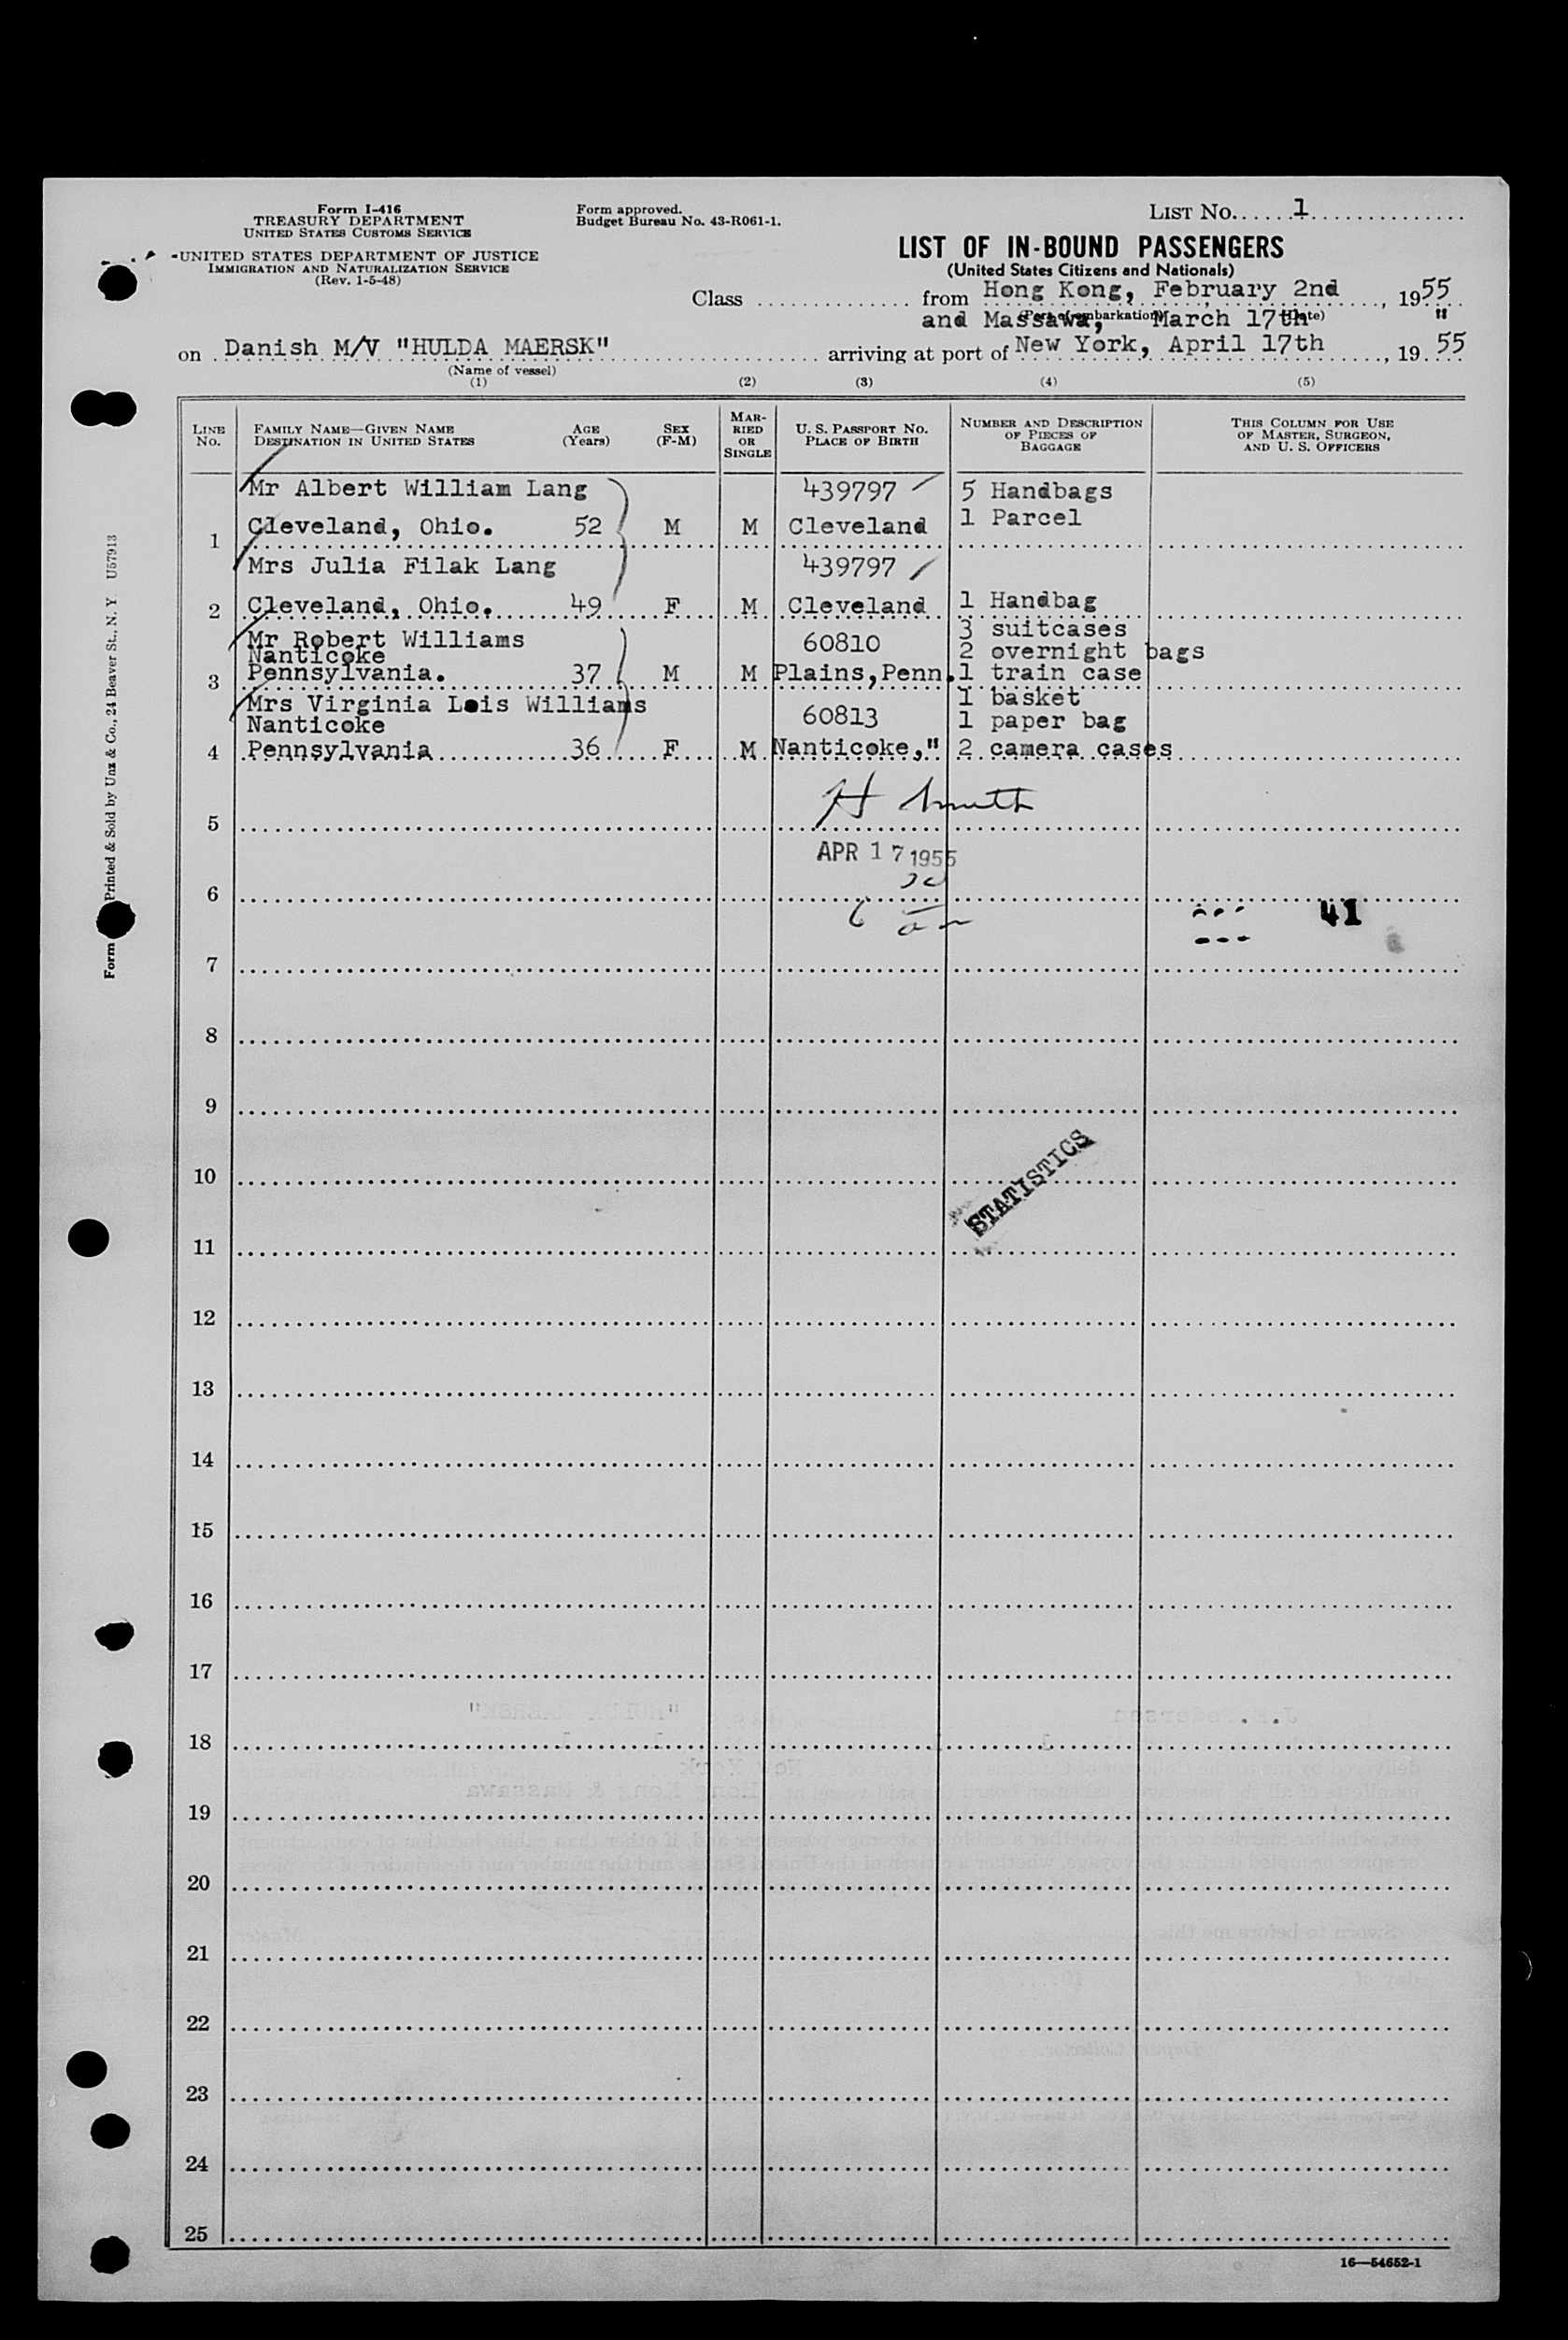 Form I-416
TREASURY DEPARTMENT
UNITED STATES CUSTOMS SERVICE
UNITED STATES DEPARTMENT OF JUSTICE
IMMIGRATION AND NATURALIZATION SERVICE
(Rev. 1-5-48)
Form approved.
Budget Bureau No. 43-R061-1.
LIST NO. 1
LIST OF IN-BOUND PASSENGERS
(United States Citizens and Nationals)
Class from Hong Kong, February 2nd, 1955
(Port of embarkation) (Date)
and Massawa, March 17th "
on Danish M/V "HULDA MAERSK" arriving at port of New York, April 17th, 19 55
(Name of vessel)
(1) (2) (3) (4) (5)
LINE NO.
FAMILY NAME—GIVEN NAME
DESTINATION IN UNITED STATES
AGE (Years)
SEX (F-M)
MARRIED OR SINGLE
U. S. PASSPORT NO.
PLACE OF BIRTH
NUMBER AND DESCRIPTION OF PIECES OF BAGGAGE
THIS COLUMN FOR USE OF MASTER, SURGEON, AND U. S. OFFICERS
Mr Albert William Lang 439797 5 Handbags
1 Cleveland, Ohio. 52 M M Cleveland 1 Parcel
Mrs Julia Filak Lang 439797
2 Cleveland, Ohio. 49 F M Cleveland 1 Handbag
Mr Robert Williams 60810 3 suitcases
Nanticoke 2 overnight bags
3 Pennsylvania. 37 M M Plains,Penn. 1 train case
Mrs Virginia Lois Williams 1 basket
Nanticoke 60813 1 paper bag
4 Pennsylvania 36 F M Nanticoke," 2 camera cases
5
APR 17 1955
6
41
7
8
9
10
STATISTICS
11
12
13
14
15
16
17
18
19
20
21
22
23
24
25
16—54652-1
Form
Printed & Sold by Unz & Co., 24 Beaver St., N. Y U57913